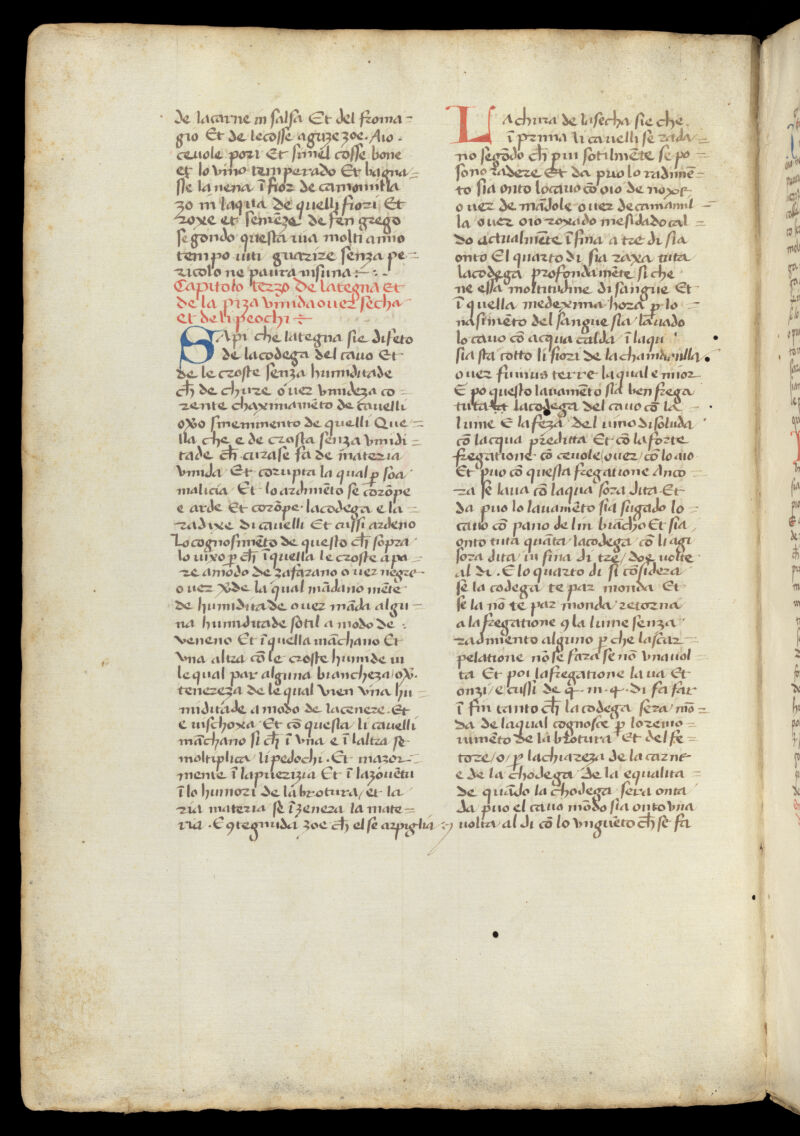 de lacarne in salsa Et del froma=
gio Et de lecosse aguze zoe. Aio.
cevole pori Et simel cosse bone
et lo vino temperado Et bagna=
sse la nena ī fior de camomilla
zo in laqua de quelli fiori Et
roxe et semēze de fen grego
segondo questa via molti anno
tempo viti guarize senza pe=
ricolo ne paura nisuna
Capitolo terzo de lategna Et
de la piza vmida ouer secha
et de li peochi
Sapi che lategna sie difeto
de lacodega del cavo Et
de le croste senza humiditade
cħ de chure ouer vmideza co=
rente chaximamēto de cavelli
oxo sinemimento de quelli Que=
lla che e de crosta senza vmidi=
tade cħ curase fa de materia
vmida Et corupta la qual ꝑ soa
malicia Et lo ardimēto se corōpe
e arde Et corōpe lacodega e la
radixe di cavelli Et cussi ardeno
Lo cognosimēto de questo cħ sopra
lo vixo ꝑ cħ ī quella le croste apa=
re amodo de zafarano o uer negre
o uer de la qual mādano mēte
de humiditade o uer māda algu=
na humiditade sotil a modo de
veneno Et ī quella māchano Et
vna altra cō le croste humide in
le qual par alguna biancheza ox.
tenereza de le qual vien vna hu=
miditade a modo de lacenere. Et
e vischoxa Et cō questa li cavelli
māchano si cħ ī vna e ī laltra se
moltiplica li pedochi. Et mazor=
mente ī lapuerizia Et ī lazouētu
ī lo humori de la brotura et la
ria materia se īzenera la mate=
ria. E 9tegnuda zoe cħ el se arpiglia
La chura de la secha sie che
ī prima li cavelli se rada=
no segōdo cħ piui sotilmēte se po=
sono radere Et da puo lo radimē=
to sia onto lo cavo cō oio de noxe
o uer de māndole o uer de camamil=
la o uer oio roxado mesidado cal=
do actualmēte ī fina a tre di sia
onto El quarto di sia raxa tuta
lacodega profondamēte si che
ne essa moltitudine di sangue Et
ī quella medexima hora ꝑ lo
nasimēto del sangue sia lavado
lo cavo cō acqua calda ī laqu
sia sta cotto li fiori de la chamamilla
o uer fumus terre laqual e mior
E po questo lauamēto sia ben frega
tuta lacodega del cavo cō la
lume E la feza del vino disoluda
cō lacqua predita Et cō la forte
fregatione cō cevole ouer cō lo aio
Et puo cō questa fregatione anco=
ra se laua cō laqua sora dita Et
da puo lo lavamēto sia sugado lo
cavo cō pano de lin biācho Et sia
onto tuta quāta lacodega cō li agi
sora dita in fina di tre doe volte
al di. E lo quarto di si cōsidera
se la codega te par monda Et
se la nō te par monda retorna
a la fregatione 9 la lume senza
radimento alguno ꝑ che lascar=
pelatione nō se fara se nō vna vol=
ta Et poi la fregatione la va Et
onzi e cussi de q. in q. di fa far
ī fin tanto cħ la codega sera mō=
da de laqual cognosce ꝑ lo remo=
vimēto de la brotura Et del fe=
tore o ꝑ la chiareza de la carne
e de la chodega de la equalita
de quādo la chodega sera onta
da puo el cavo mōdo sia onto vna
volta al di cō lo vnguēto cħ se fa